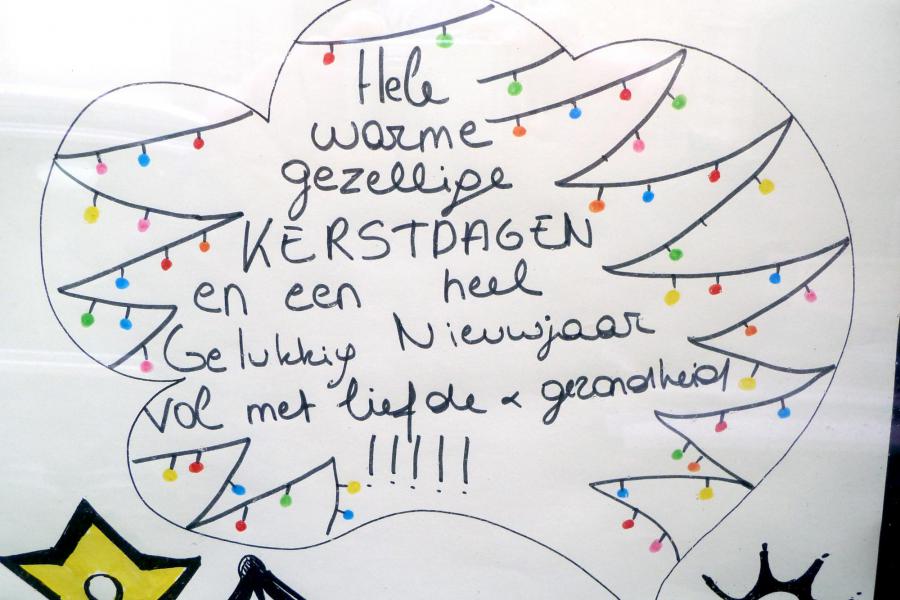 Hele
warme
gezellige
KERSTDAGEN
en een heel
Gelukkig Nieuwjaar
vol met liefde & gezondheid
!!!!!